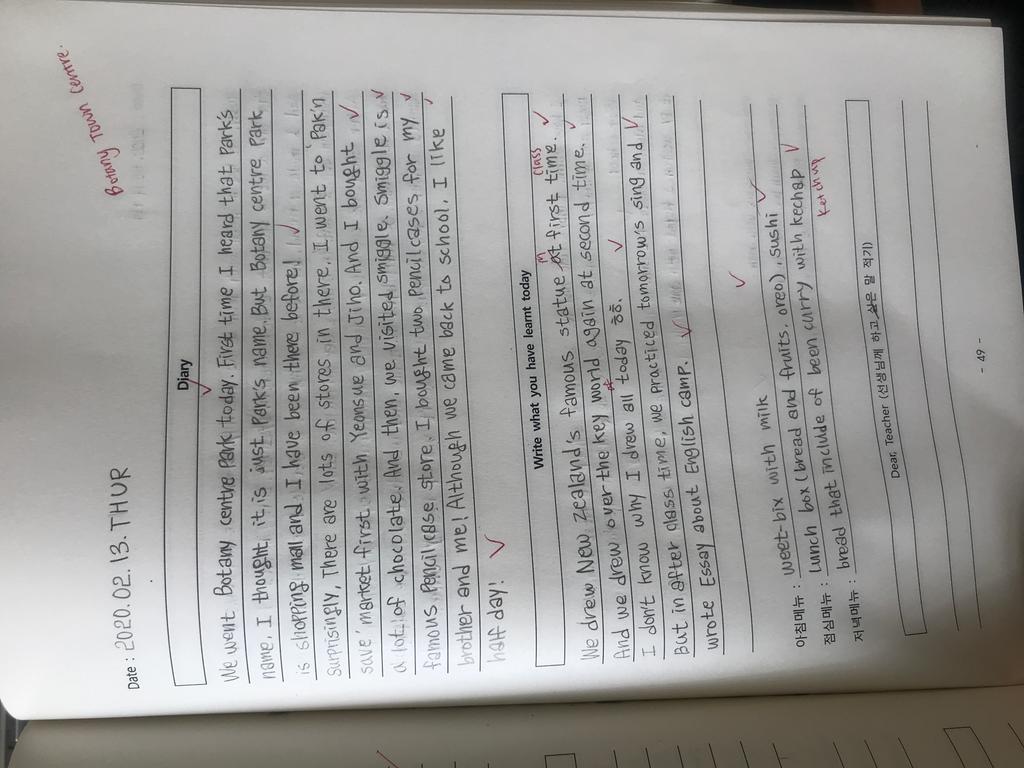 Botany Town Centre.
Date : 2020. 02. 13. THUR
Diary
We went Botany centre Park today. First time, I heard that Park's
name, I thought, it is just Parks name. But Botany centre Park
is shopping mall and I have been there before!
Surprisingly, There are lots of stores in there. I went to 'Pak'n
save' market first with Yeonsue and Jiho. And I bought
a lot of chocolate. And then, we visited smiggle. Smiggle is
famous Pencil case store. I bought two Pencil cases for my
brother and me! Although we came back to school, I like
half day!
Write what you have learnt today
class
We drew New Zealand's famous statue at first time.
And we drew over the key world again at second time.
I don't know why I drew all today ㅎㅎ.
But in after class time, we practiced tomorrow's sing and
wrote Essay about English camp.
아침메뉴 : weet-bix with milk
점심메뉴 : Lunch box (bread and fruits, oreo), sushi
저녁메뉴 : bread that include of been curry with kechap
ketchup
Dear, Teacher (선생님께 하고 싶은 말 적기)
- 49 -